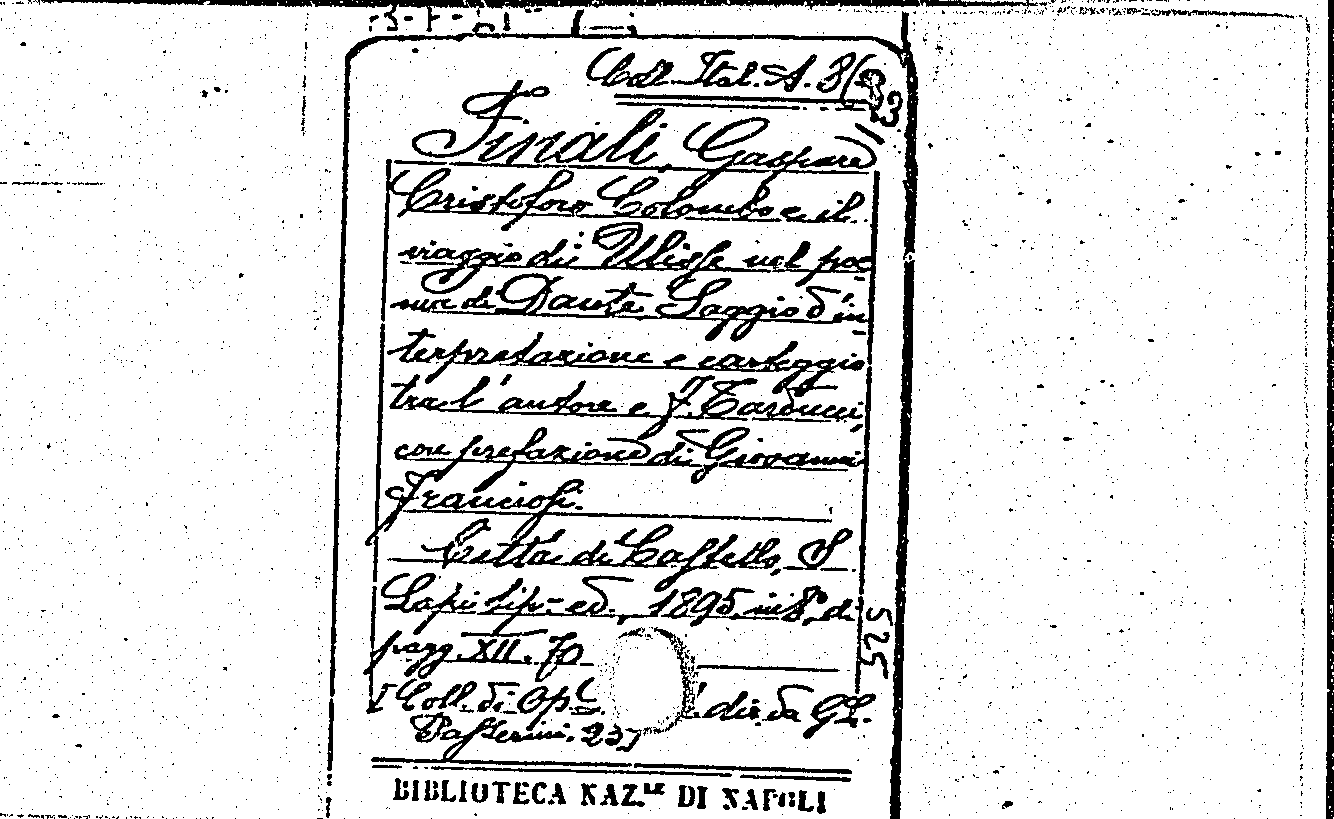 Coll. Ital. A. 3(33
Finali, Gaspare
Cristoforo Colombo e il
viaggio di Ulisse nel poe
ma di Dante. Saggio d'in
terpretazione e carteggio
tra l'autore e F. Carducci,
con prefazione di Giovanni
Franciosi.
Città di Castello, S
Lapi tip-ed., 1895, in 8°, di
pagg. XII. 70
[Coll. di op. dir. da G L.
Passerini. 23]
525
BIBLIOTECA NAZ.LE DI NAPOLI